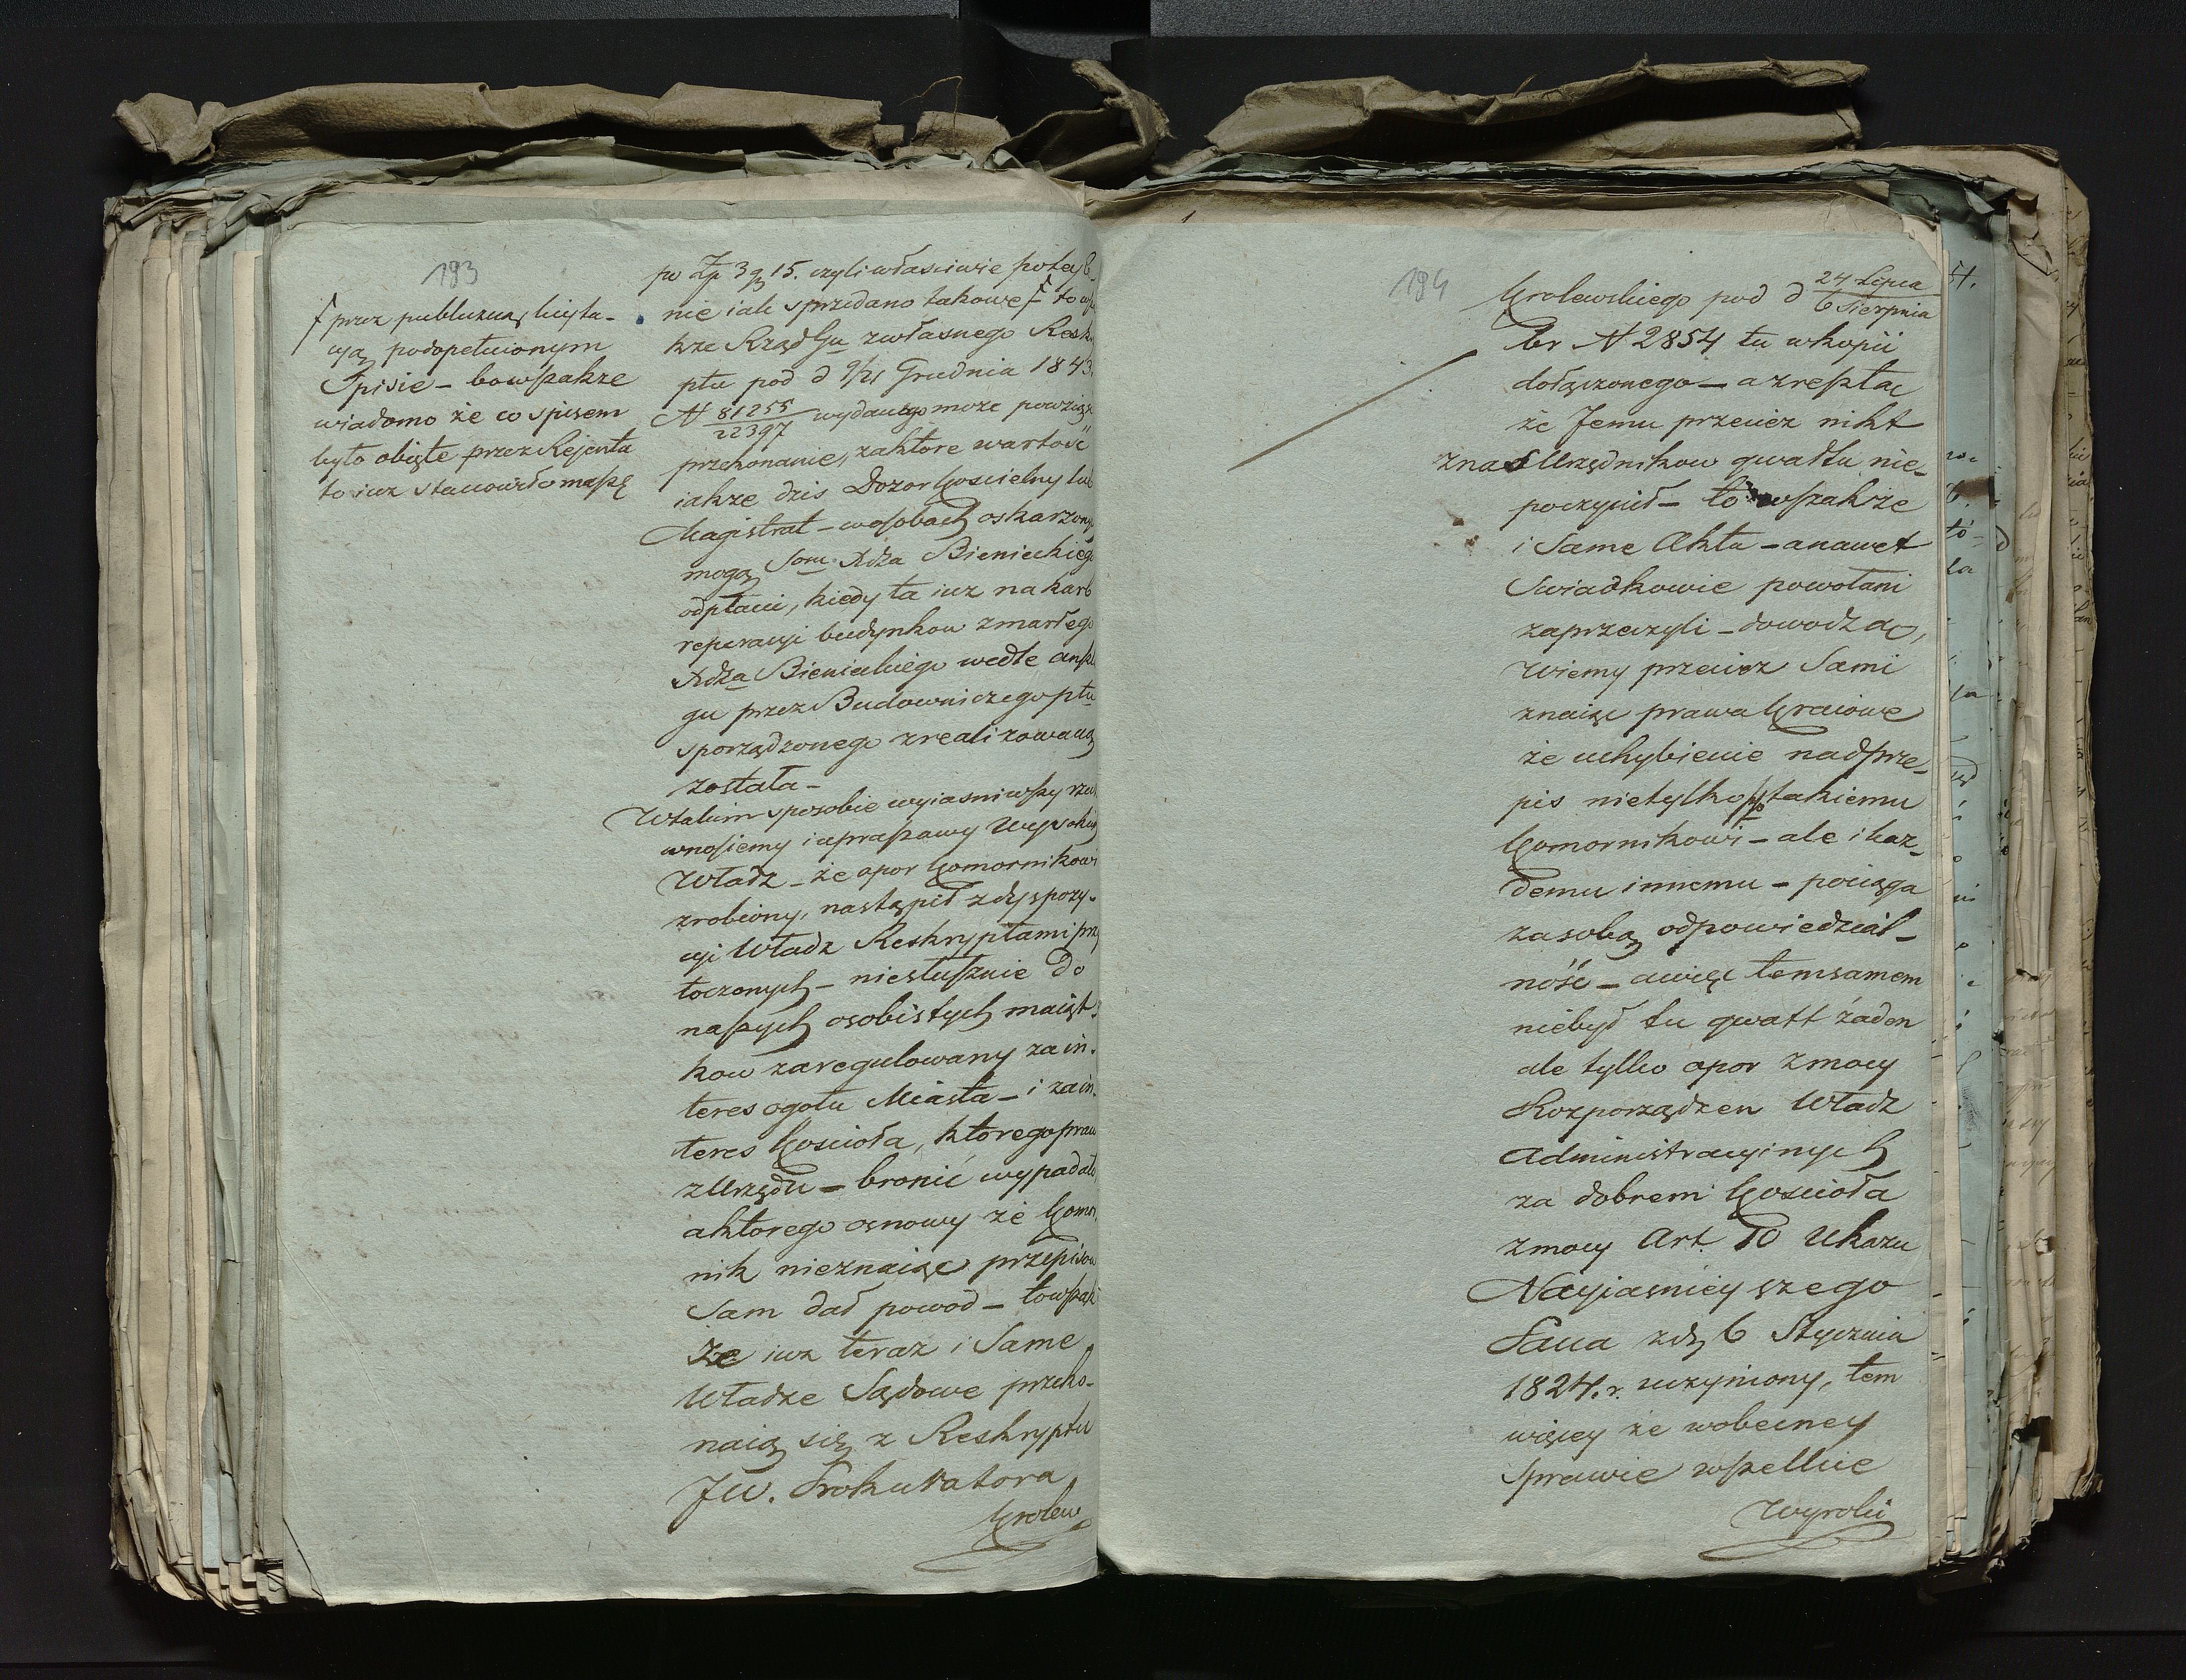 193
ƒ przez publiczną licyta-
cyą podopełnionym
Spisie – bowszakze
wiadomo że co spisem
było obięte przez Rejenta
to iuz stanowiło massę
po Zp 3 g 15. czyli własciwie
nie iak sprzedano takowe ƒ to
kze Rząd Gu zwłasnego Resk
ptu pod d 9/21 Grudnia 1843.
N 81255/22397 wydanego moze powziąsc
przekonanie, zaktore wartość
iakze dzis Dozor Koscielny lub
Magistrat – wosobach oskarzony
mogą Som Xdza Bienieckiego
odpłacic, kiedy ta iuz na karb
reperacyi budynkow zmarłego
Xdza Bienieckiego wedle anszl
gu przez Budowniczego ptu
sporządzonego zrealizowaną
została –
Wtakim sposobie wyiasniwszy rzecz
wnosiemy i upraszamy Wysokich
Władz – że opor Komornikowi
zrobiony, nastąpił zdyspozy-
cyi Władz Reskryptami przy
toczonych – niesłusznie do
naszych osobistych maiąt-
kow zaregulowany za in-
teres ogołu Miasta – i zain-
teres Koscioła, ktorego praw
zUrzędu – bronić wypadało
aktorego osnowy że Komor
nik nieznaiąc przepisow
Sam dał powod – towszak
że iuz teraz i Same
Władze Sądowe przeko-
naią się z Reskryptu
JW. Prokuratora
Krolew
194
Krolewskiego pod d 24 Lipca/6 Sierpnia
br N 2854 tu wkopii
dołączonego – a zresztą
że Jemu przeciez nikt
znas Urzędnikow gwałtu nie-
poczynił – to wszakże
i Same Akta – anawet
Swiadkowie powołani
zaprzeczyli – dowodzą,
Wiemy przeciez Sami
znaiąc prawa Kraiowe
że uchybienie nadprze-
pis nietylko takiemu
Komornikowi – ale i kaz-
demu innemu – pociąga
zasobą odpowiedzial-
ność – awięc temsamem
niebył tu gwałt żaden
ale tylko opor zmocy
Rozporządzen Władz
Administracyinych
za dobrem Koscioła
zmocy Art. 10 Ukazu
Nayiasnieyszego
Pana zdn 6 Stycznia
1824. r. uczyniony, tem
więcey że wobecney
Sprawie wszelkie
Wyroki